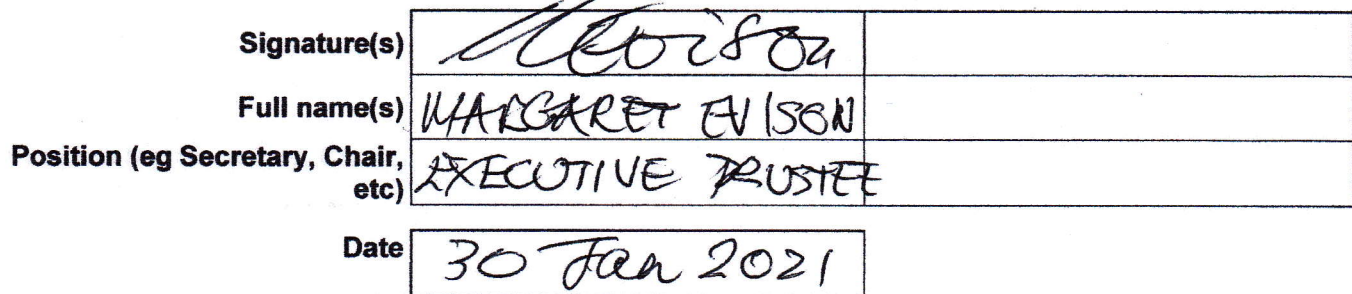 Signature(s) MEvison
Full name(s) MARGARET EVISON
Position (eg Secretary, Chair,
etc) EXECUTIVE TRUSTEE
Date 30 Jan 2021